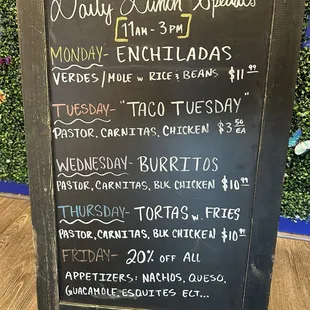 Daily Lunch Specials
11AM - 3PM
MONDAY- ENCHILADAS
VERDES/MOLE W RICE & BEANS $11.99
TUESDAY- "TACO TUESDAY"
PASTOR, CARNITAS, CHICKEN $3.50 EA
WEDNESDAY- BURRITOS
PASTOR, CARNITAS, BLK CHICKEN $10.99
THURSDAY- TORTAS W. FRIES
PASTOR, CARNITAS, BLK CHICKEN $10.99
FRIDAY- 20% OFF ALL
APPETIZERS: NACHOS, QUESO,
GUACAMOLE, ESQUITES ECT...